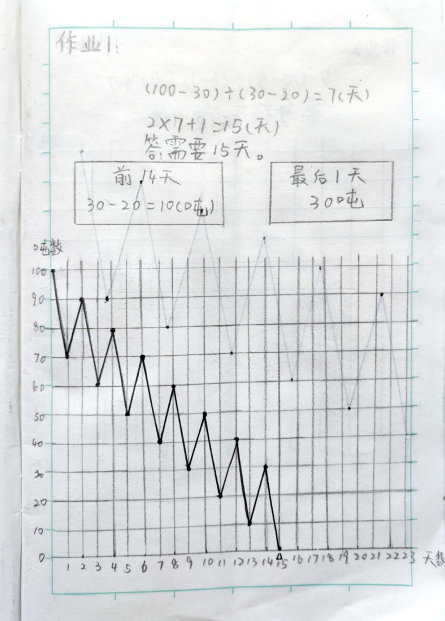 作业1:
(100-30)÷(30-20)=7(天)
2×7+1=15(天)
答:需要15天。
前14天
30-20=10(吨)
最后1天
30吨
吨数
100
90
80
70
60
50
40
30
20
10
0
1 2 3 4 5 6 7 8 9 10 11 12 13 14 15 16 17 18 19 20 21 22 23 天数